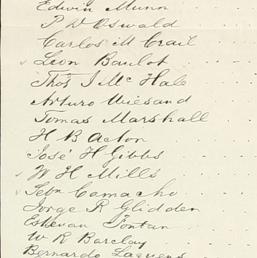 Edwin Munn
P D Oswald
Carlos M Crail
Leon Baulot
Thos J Mc Hale
Arturo Wiesand
Tomas Marshall
H B Acton
José H Gibbs
W H Mills
Sebn Camacho
Jorge R Glidden
Esthevan
W R Barclay
Bernardo